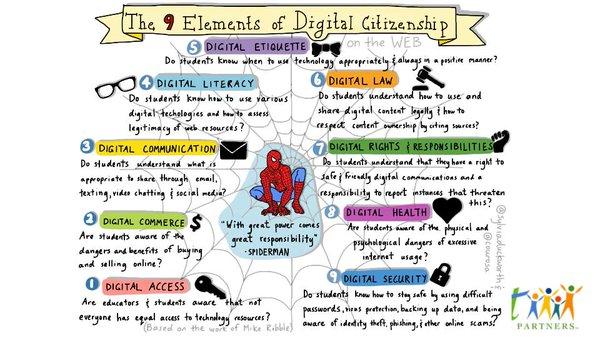 The 9 Elements of Digital Citizenship
on the WEB
5 DIGITAL ETIQUETTE
Do students know when to use technology appropriately & always in a positive manner?
4 DIGITAL LITERACY
Do students know how to use various
digital techologies and how to assess
legitimacy of web resources?
6 DIGITAL LAW
Do students understand how to use and
share digital content legally & how to
respect content ownership by citing sources?
3 DIGITAL COMMUNICATION
Do students understand what is
appropriate to share through email,
texting, video chatting & social media?
7 DIGITAL RIGHTS & RESPONSIBILITIES
Do students understand that they have a right to
safe & friendly digital communications and a
responsibility to report instances that threaten
this?
2 DIGITAL COMMERCE
$
Are students aware of the
dangers and benefits of buying
and selling online?
"With great power comes
great responsibility"
-SPIDERMAN
8 DIGITAL HEALTH
Are students aware of the physical and
psychological dangers of excessive
internet usage?
1 DIGITAL ACCESS
Are educators & students aware that not
everyone has equal access to technology resources?
(Based on the work of Mike Ribble)
9 DIGITAL SECURITY
Do students know how to stay safe by using difficult
passwords, virus protection, backing up data, and being
aware of identity theft, phishing, & other online scams?
@sylviaduckworth &
PARTNERS